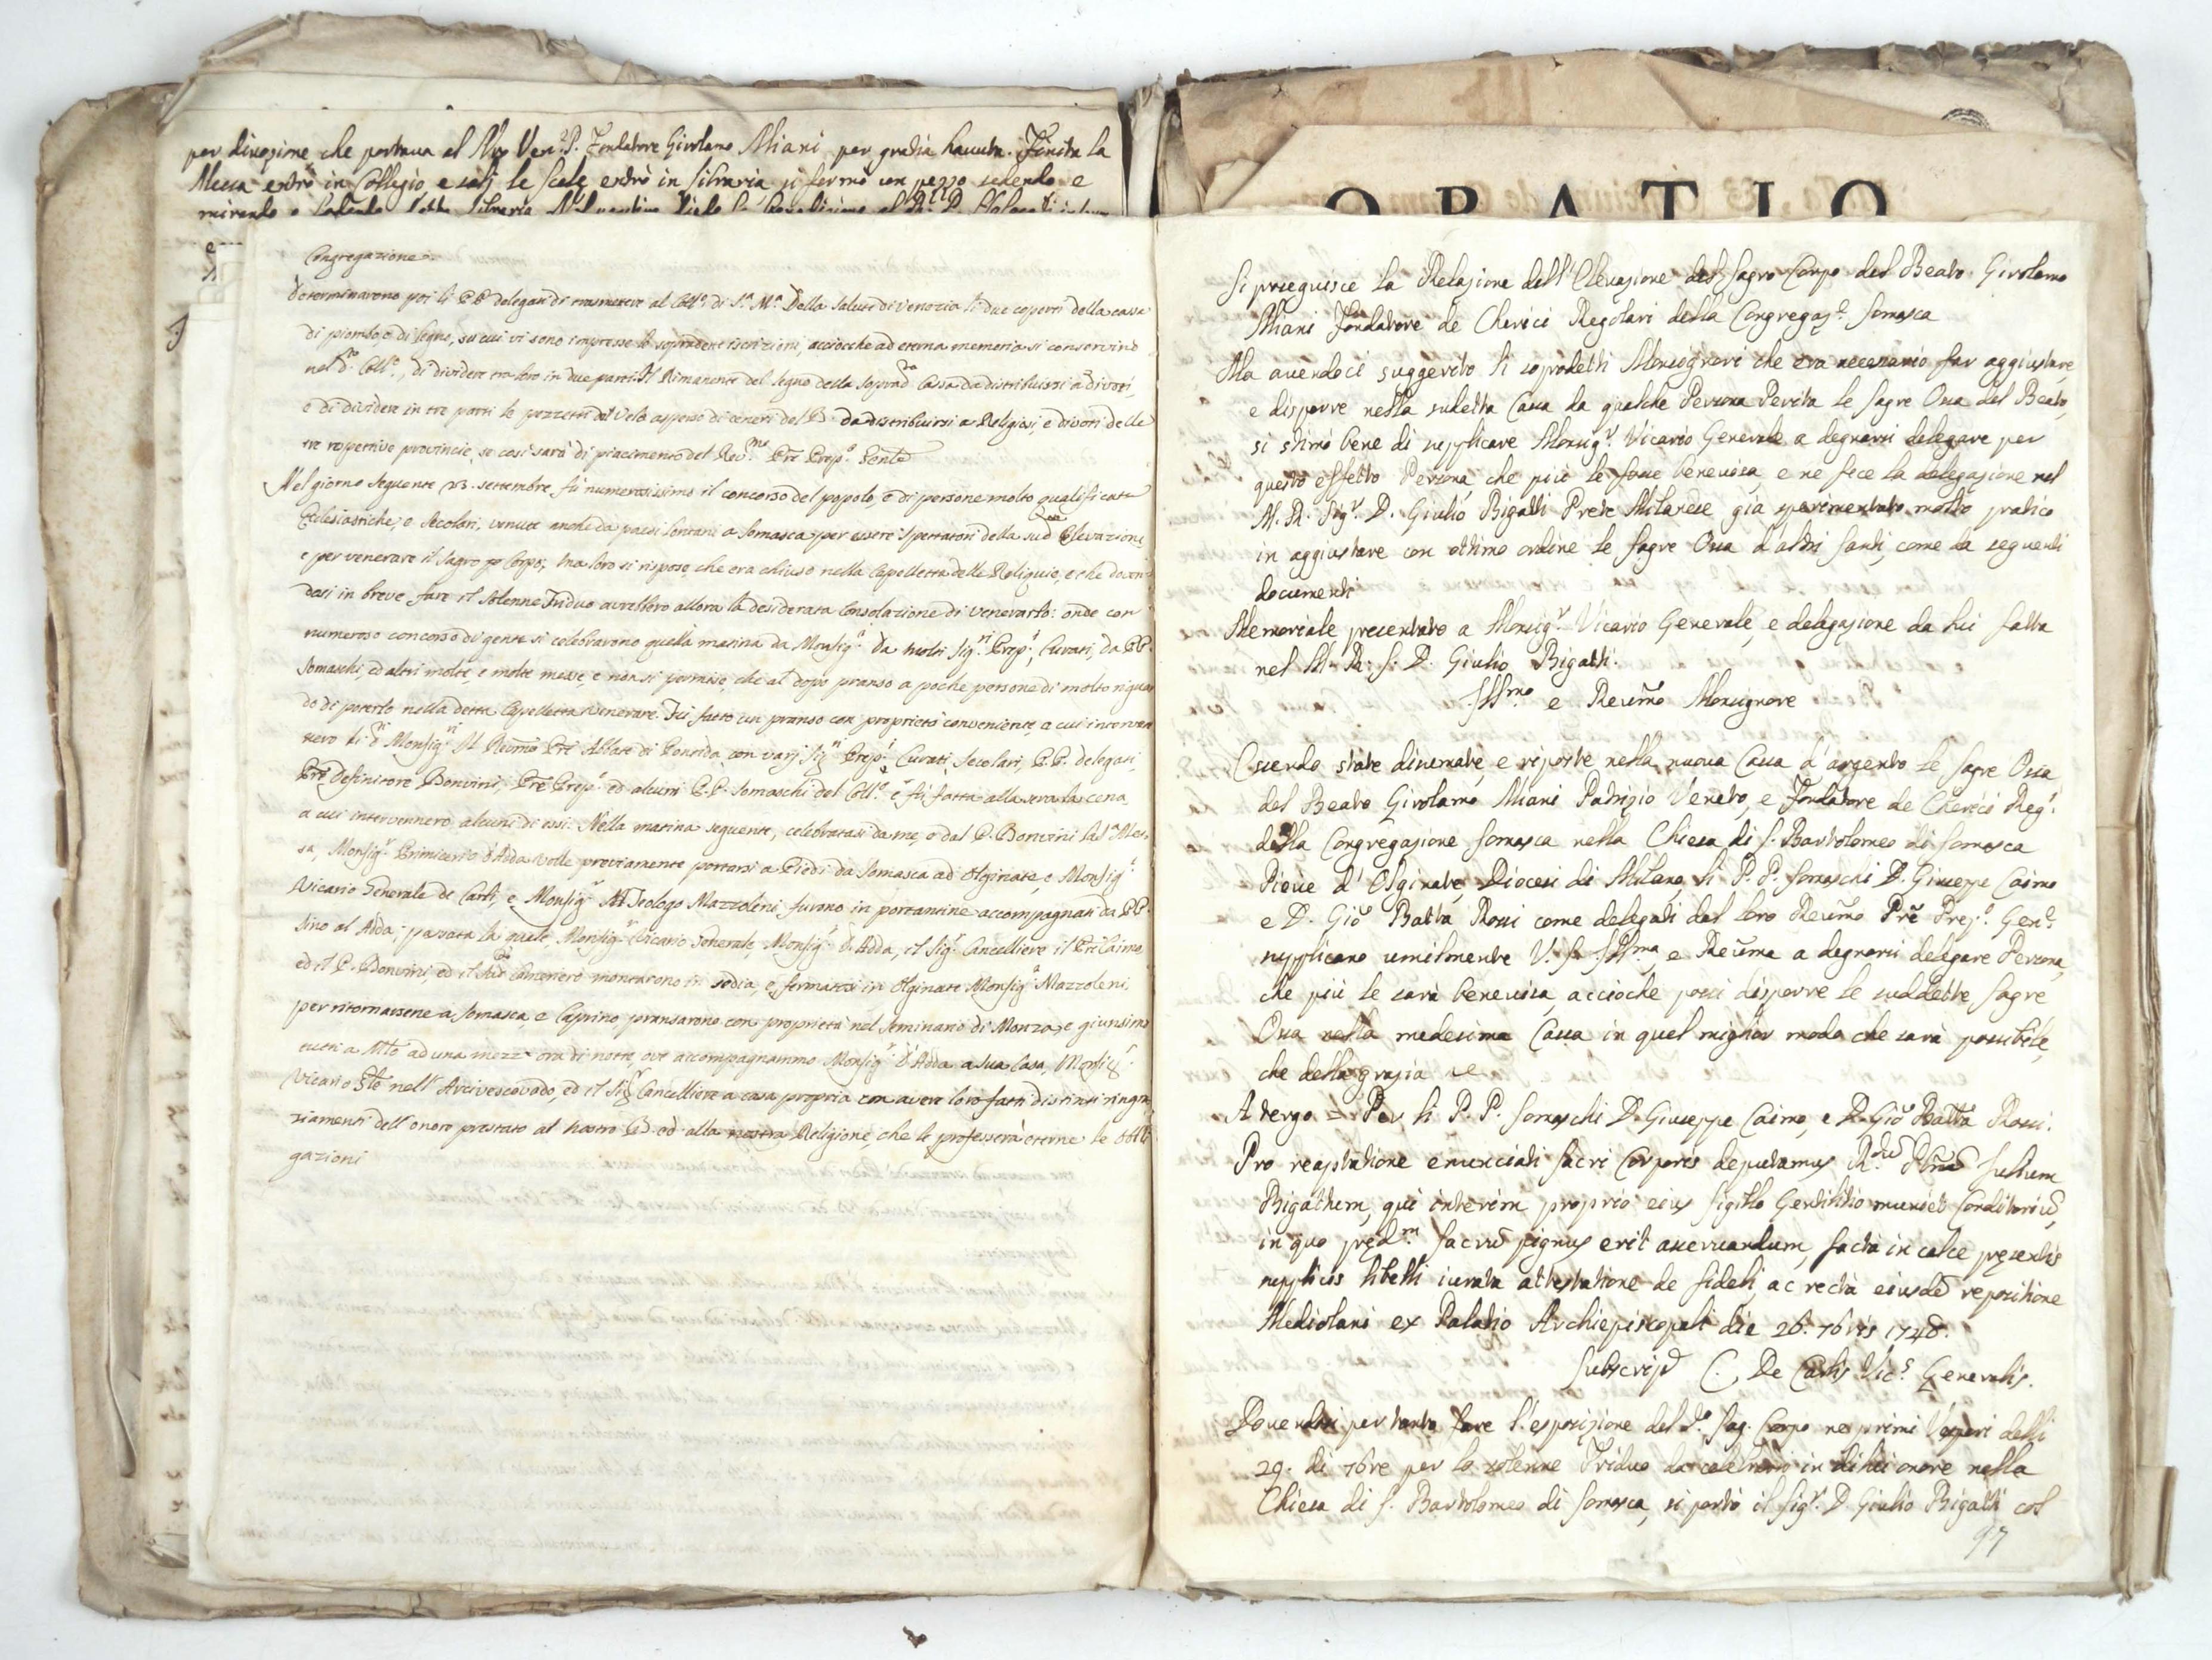 per divozione che portava al Nro Ven. P. Fondatore Girolamo Miani per gratia havuta. Finita la
Messa entrò in Collegio, e salj le scale entrò in libraria, si fermò un pezzo sedendo, e
mirando e lodando detta libraria
Congregazione.
Determinarono poi li PP delegati di trasmettere al Coll.o di S.a M.a Della Salute di Venezia li due coperti della cassa
di piombo, e di legno, su cui vi sono impresse le sopradette iscrizioni, acciocche ad eterna memoria si conservino
nel d.o Coll.o, di dividere tra loro in due parti il Rimanente del legno della soprad.a Cassa da distribuirsi a divoti,
e di dividere in tre parti le pezzette del velo asperso di ceneri del B. da distribuirsi a Religiosi, e divoti delle
tre rispettive provincie, se così sarà di piacimento del Rev.mo Pre Prep.o Gen.le
Nel giorno seguente 23. settembre fù numerosissimo il concorso del popolo, e di persone molto qualificate
Ecclesiastiche, e Secolari, venute anche da paesi lontani a Somasca per essere spettatori della sud.a Elevazione,
e per venerare il Sagro Corpo; ma loro si rispose, che era chiuso nella Cappelletta delle Reliquie, e che doven-
dosi in breve fare il solenne Triduo avrebbero allora la desiderata consolazione di venerarlo: onde con
numeroso concorso di gente si celebrarono quella matina da Monsig.ri da molti Sig.ri Prep.i, Curati, da PP.
Somaschi, ed altri molte, e molte messe, e non si permise, che al dopo pranso a poche persone di molto riguar
do di poterlo nella detta Cappelletta venerare. Fu fatto un pranso con proprietà conveniente, a cui interven
nero li d.i Monsig.ri Il Reumo Pre Abbate di Pontida, con varj Sig.ri Prep.i Curati, Secolari, P.P. delegati,
Pre Definitore Bonvini, Pre Prep.o ed alcuni P.P. Somaschi del Coll.o e fù fatta alla sera la cena,
a cui intervennero alcuni di essi. Nella matina seguente, celebratasi da me, e dal P. Bonvini la S. Mes-
sa, Monsig.r Primicerio d'Adda volle proviamente portarsi a Piedi da Somasca ad Olginate, e Monsig.r
Vicario Generale de Carli, e Monsig.r Teologo Mazzoleni furono in portantine accompagnati da PP.
sino al Adda; passata la quale Monsig.r Vicario Generale, Monsig.r d'Adda, il Sig.r Cancelliere il Pre Caimo,
ed il P. Bonvini, ed il Sud.o montarono in sedia, e fermatosi in Olginate Monsig.r Mazzoleni,
per ritornarsene a Somasca, e Caprino pransarono con proprietà nel Seminario di Monza, e giunsimo
tutti a Mlo ad una mezz' ora di notte, ove accompagnammo Monsig.r d'Adda a sua Casa, Monsig.r
Vicario Gle nell' Arcivescovado, ed il Sig.r Cancelliere a casa propria con avere loro fatti distinti ringra
ziamenti dell' onore prestato al nostro B. ed alla nostra Religione, che le professerà eterne le obbli
gazioni
ORATIO
Si proseguisce la Relazione dell' Elevazione del Sagro Corpo del Beato Girolamo
Miani Fondatore de Cherici Regolari della Congregaz.e Somasca
Ma avendoci suggerito li sopradetti Monsignori che era necessario far aggiustare,
e disporre nella sudetta Cassa da qualche Persona Perita le Sagre Ossa del Beato,
si stimò bene di supplicare Monsig.r Vicario Generale a degnarsi delegare per
questo effetto Persona che più le fosse benevisa, e ne fece la delegazione nel
M. R. Sig.r D. Giulio Bigatti Prete Milanese già sperimentato molto pratico
in aggiustare con ottimo ordine le Sagre Ossa d'altri Santi, come da seguenti
documenti
Memoriale presentato a Monsig.r Vicario Generale, e delegazione da lui fatta
nel M. R. S. D. Giulio Bigatti.
Ill.mo e Reumo Monsignore
Essendo state disumate, e riposte nella nuova Cassa d'argento le Sagre Ossa
del Beato Girolamo Miani Patrizio Veneto, e Fondatore de Cherici Reg.i
della Congregazione Somasca nella Chiesa di S. Bartolomeo di Somasca
Pieve d'Olginate, Diocesi di Milano, li P.P. Somaschi D. Giuseppe Caimo
e D. Gio Batta Rossi come delegati dal loro Reumo Pre Prep.o Gen.e
supplicano umilmente V. S. Ill.ma e Reuma a degnarsi delegare Persona,
che più le sarà benevisa, accioche possi disporre le suddette Sagre
Ossa nella medesima Cassa in quel miglior modo che sarà possibile,
che della grazia &c.
A tergo = Per li P. P. Somaschi D. Giuseppe Caimo, e D. Gio Batta Rossi.
Pro reaptatione enunciati Sacri Corporis deputamus R.dum Dnum Julium
Bigattum, qui interim proprio eius sigillo Gentilitio muniet Conditoriũ,
in quo pręd.m Sacrũ pignus erit asservandum, facta in calce pręsentis
supplicis libelli iurata attestatione de fideli, ac recta eiusdẽ repositione
Mediolani ex Palatio Archiepiscopali die 26. 7bris 1748.
Subscrip. C. De Carlis Vic.s Generalis.
Dovendosi per tanto fare l'esposizione del d.o Sag. Corpo ne primi Vesperi delli
29. di 7bre per lo solenne Triduo da celebrarsi in di lui onore nella
Chiesa di S. Bartolomeo di Somasca, si portò il Sig.r D. Giulio Bigatti col
97